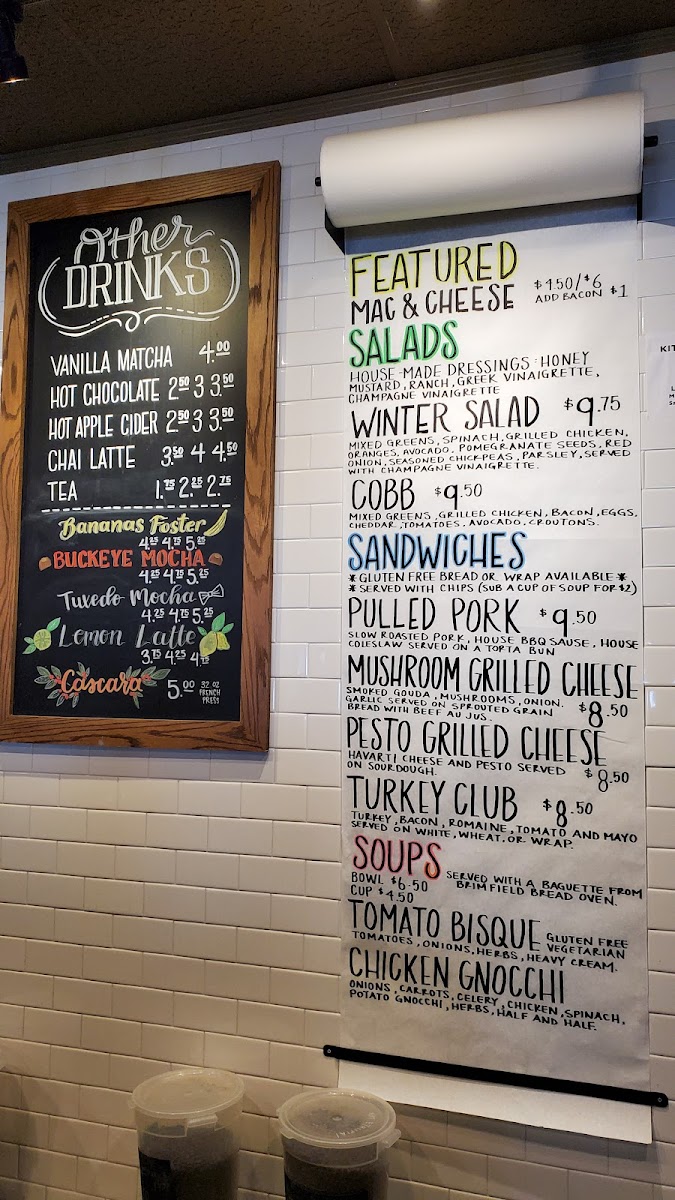 Other
DRINKS
VANILLA MATCHA 4.00
HOT CHOCOLATE 2.50 3 3.50
HOT APPLE CIDER 2.50 3 3.50
CHAI LATTE 3.50 4 4.50
TEA 1.75 2.25 2.75
Bananas Foster
4.25 4.75 5.25
BUCKEYE MOCHA
4.25 4.75 5.25
Tuxedo Mocha
4.25 4.75 5.25
Lemon Latte
3.75 4.25 4.75
Cascara 5.00 32 OZ
FRENCH
PRESS
FEATURED
MAC & CHEESE $4.50/$6
ADD BACON $1
SALADS
HOUSE-MADE DRESSINGS: HONEY
MUSTARD, RANCH, GREEK VINAIGRETTE,
CHAMPAGNE VINAIGRETTE
WINTER SALAD $9.75
MIXED GREENS, SPINACH, GRILLED CHICKEN,
ORANGES, AVOCADO, POMEGRANATE SEEDS, RED
ONION, SEASONED CHICKPEAS, PARSLEY, SERVED
WITH CHAMPAGNE VINAIGRETTE.
COBB $9.50
MIXED GREENS, GRILLED CHICKEN, BACON, EGGS,
CHEDDAR, TOMATOES, AVOCADO, CROUTONS.
SANDWICHES
* GLUTEN FREE BREAD OR WRAP AVAILABLE *
* SERVED WITH CHIPS (SUB A CUP OF SOUP FOR $2)
PULLED PORK $9.50
SLOW ROASTED PORK, HOUSE BBQ SAUSE, HOUSE
COLESLAW SERVED ON A TORTA BUN
MUSHROOM GRILLED CHEESE
SMOKED GOUDA, MUSHROOMS, ONION,
GARLIC SERVED ON SPROUTED GRAIN $8.50
BREAD WITH BEEF AU JUS.
PESTO GRILLED CHEESE
HAVARTI CHEESE AND PESTO SERVED $8.50
ON SOURDOUGH.
TURKEY CLUB $8.50
TURKEY, BACON, ROMAINE, TOMATO AND MAYO
SERVED ON WHITE, WHEAT, OR WRAP.
SOUPS
SERVED WITH A BAGUETTE FROM
BRIMFIELD BREAD OVEN.
BOWL $6.50
CUP $4.50
TOMATO BISQUE GLUTEN FREE
VEGETARIAN
TOMATOES, ONIONS, HERBS, HEAVY CREAM.
CHICKEN GNOCCHI
ONIONS, CARROTS, CELERY, CHICKEN, SPINACH,
POTATO GNOCCHI, HERBS, HALF AND HALF.